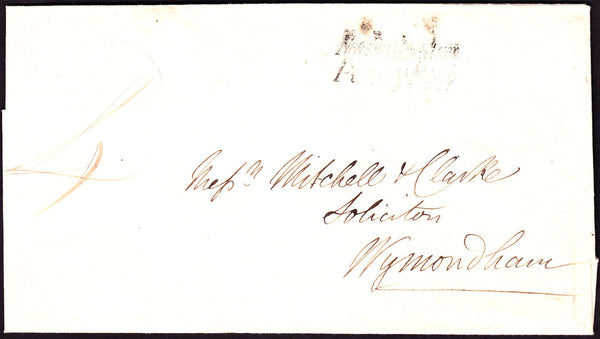 Penny Post
4
Messrs Mitchell & Clarke
Solicitors
Wymondham